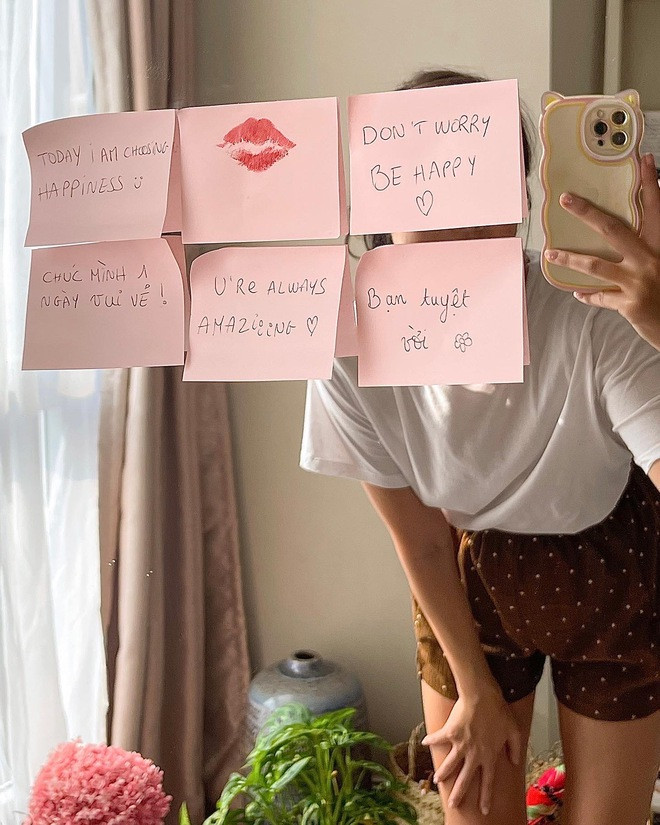 TODAY i AM CHOOSING
HAPPINESS
DON'T WORRY
BE HAPPY
CHÚC MÌNH 1
NGÀY VUI VẺ!
U'Re ALWAYS
AMAZiiiiNG
Bạn tuyệt
vời